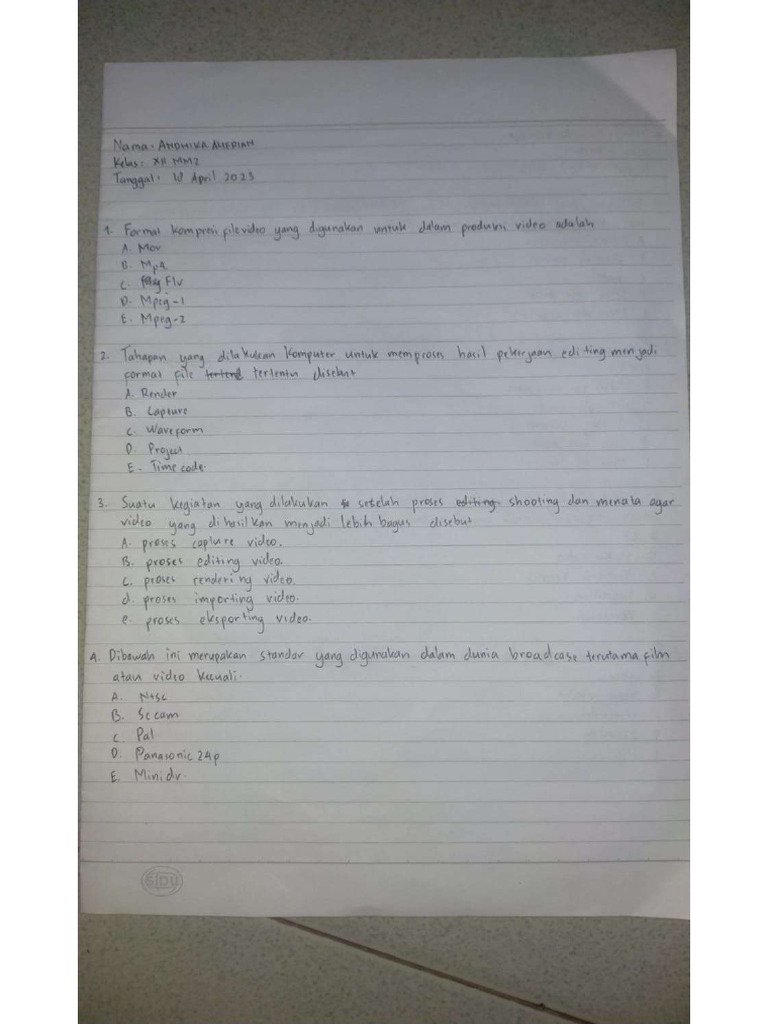 Nama: ANDHIKA
Kelas: XII MM2
Tanggal: April 2023
1. Format kompresi file video yang digunakan untuk dalam produksi video adalah
A. Mov
B. Mp4
C. Flv
D. Mpeg-1
E. Mpeg-2
2. Tahapan yang dilakukan komputer untuk memproses hasil pekerjaan editing menjadi
format file tertentu disebut
A. Render
B. Capture
C. Waveform
D. Project
E. Time code.
3. Suatu kegiatan yang dilakukan setelah proses editing shooting dan menata agar
video yang dihasilkan menjadi lebih bagus disebut
A. proses capture video.
B. proses editing video.
C. proses rendering video.
d. proses importing video.
e. proses eksporting video.
4. Dibawah ini merupakan standar yang digunakan dalam dunia broadcase terutama film
atau video kecuali.
A. Ntsc
B. Sccam
C. Pal
D. Panasonic 24p
E. Mini dv.
SDU